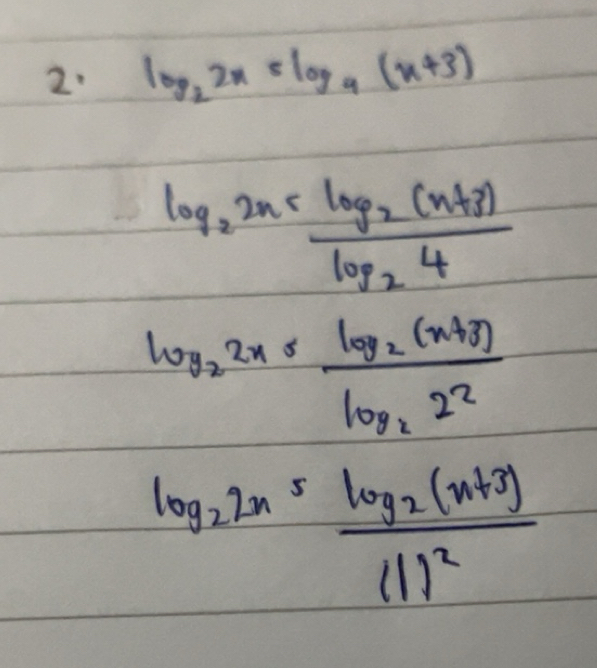 2. log₂ 2x = log₄ (x+3)
log₂ 2x = log₂ (x+3) / log₂ 4
log₂ 2x = log₂ (x+3) / log₂ 2²
log₂ 2x = log₂ (x+3) / (1)²